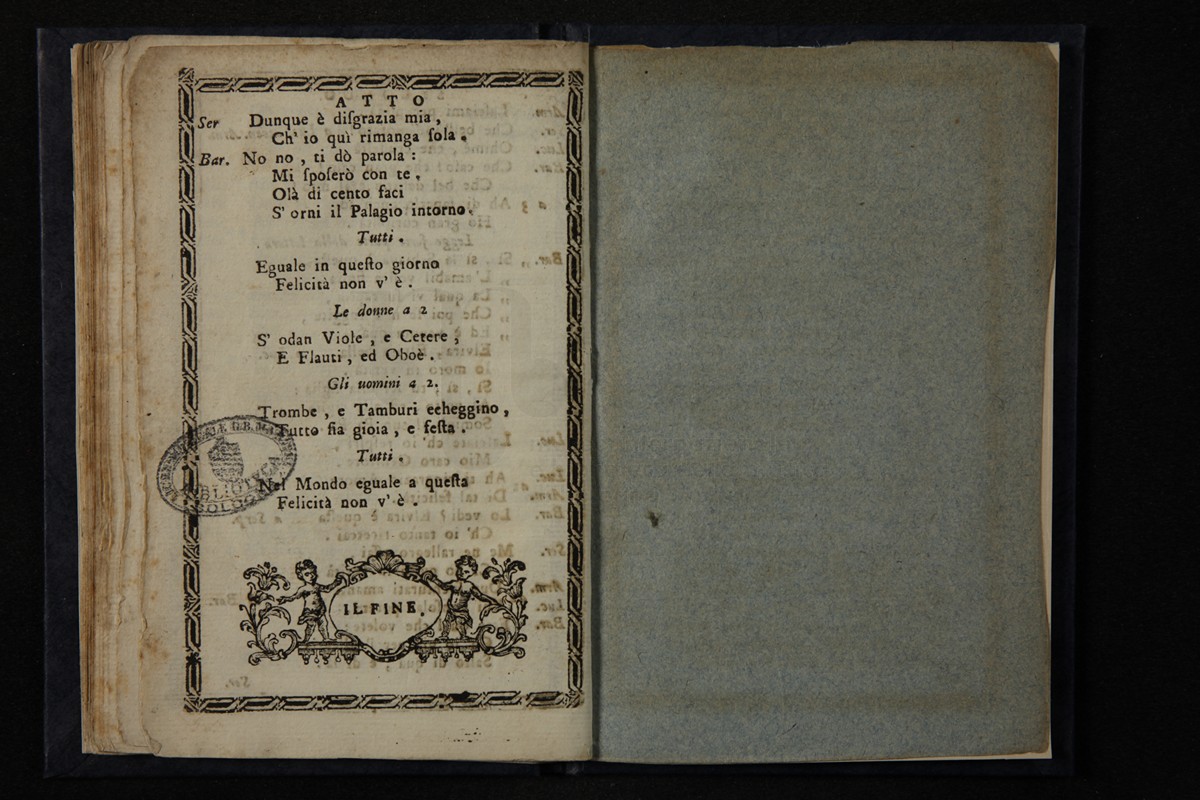 ATTO
Ser Dunque è diſgrazia mia ,
Ch' io quì rimanga ſola .
Bar. No no , ti dò parola :
Mi ſpoſerò con te .
Olà di cento faci
S' orni il Palagio intorno .
Tutti .
Eguale in queſto giorno
Felicità non v' è .
Le donne a 2
S' odan Viole , e Cetere ,
E Flauti , ed Oboè .
Gli uomini a 2.
Trombe , e Tamburi echeggino ,
Tutto ſia gioia , e feſta .
Tutti .
Nel Mondo eguale a queſta
Felicità non v' è .
IL FINE .